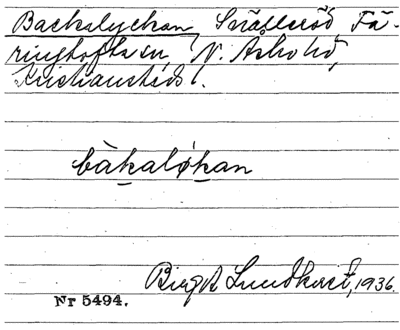 Backalyckan, Snälleröd, Fä-
ringtofta sn, N. Åsbo hd,
Kristianstads l.
bàkaløkan
Birgit Lundkvist, 1936.
Nr 5494.